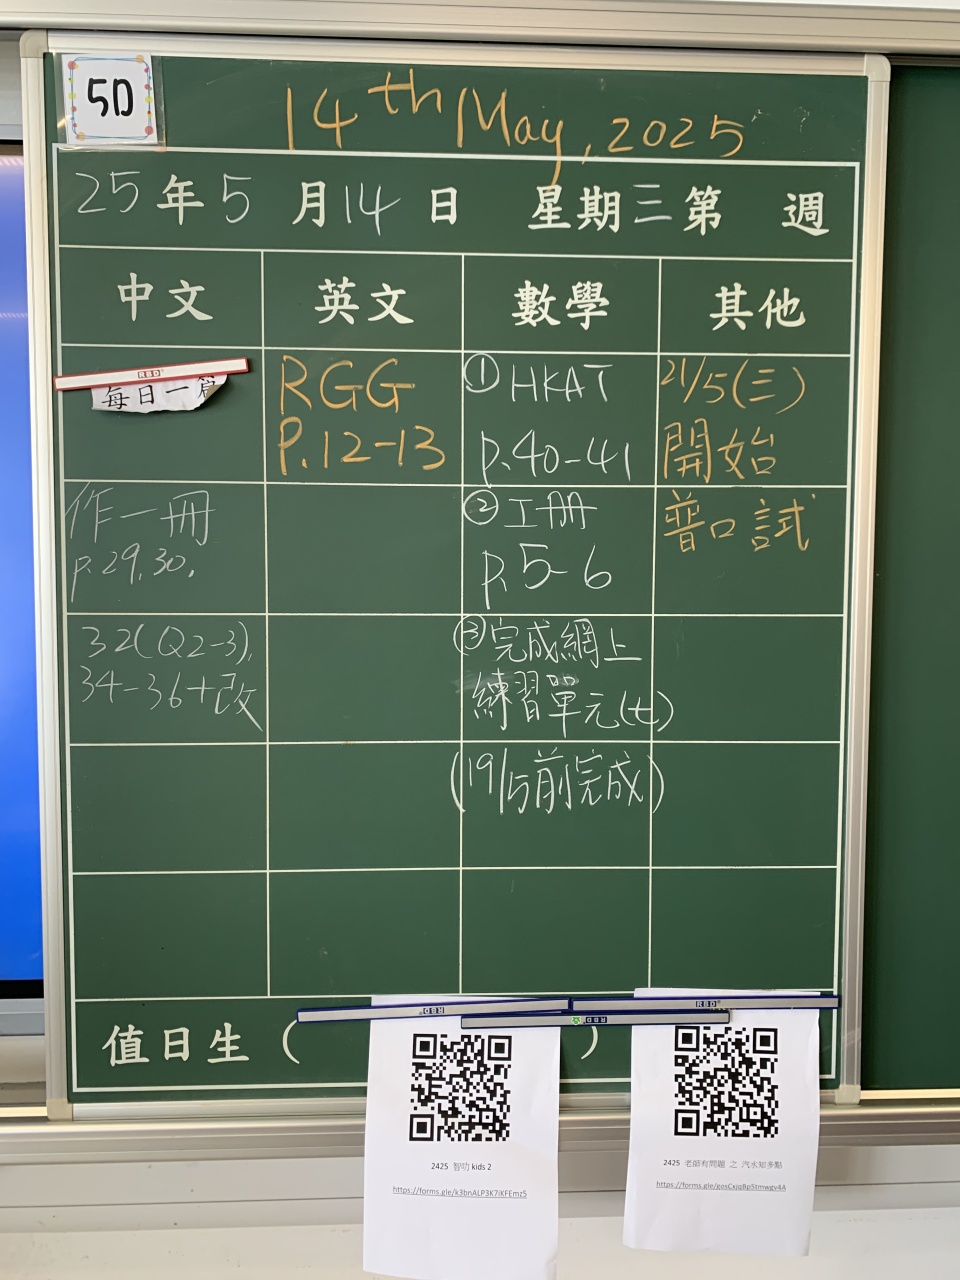 5D
14th May, 2025
25年5月14日 星期三第 週
中文 英文 數學 其他
RBD
每日一篇
作一冊
p.29,30.
32(Q2-3),
34-36+改
RGG
P.12-13
① HKAT
p.40-41
② 工冊
p.5-6
③完成網上
練習單元(七)
(19/5前完成)
21/5(三)
開始
普口試
值日生 ( )
RBD
RBD
RBD
2425 智叻 kids 2
https://forms.gle/k3bnALP3K7iKFEmz5
2425 老師有問題 之 汽水知多點
https://forms.gle/gosCxjqBp5tmwgv4A